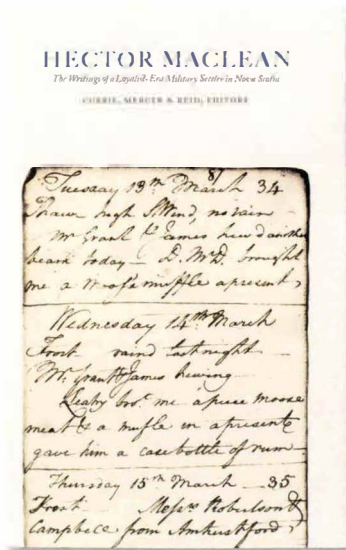 HECTOR MACLEAN
The Writings of a Loyalist-Era Military Settler in Nova Scotia
CURRIE, MERCER & REID, EDITORS
Tuesday 13th March 34
Thaw high SWind, no rain
Mr Grant & James hew'd another
beam today — D. McD. brought
me a of a muffle a present,
Wednesday 14th March
Frost raind last night
Mr. Grant & James hewing
Leahy bro't me a piece moose
meat & a mufle in a present &
gave him a case bottle of rum —
Thursday 15th March — 35
Frost Messrs Robertson &
Campbell from Amherstford,